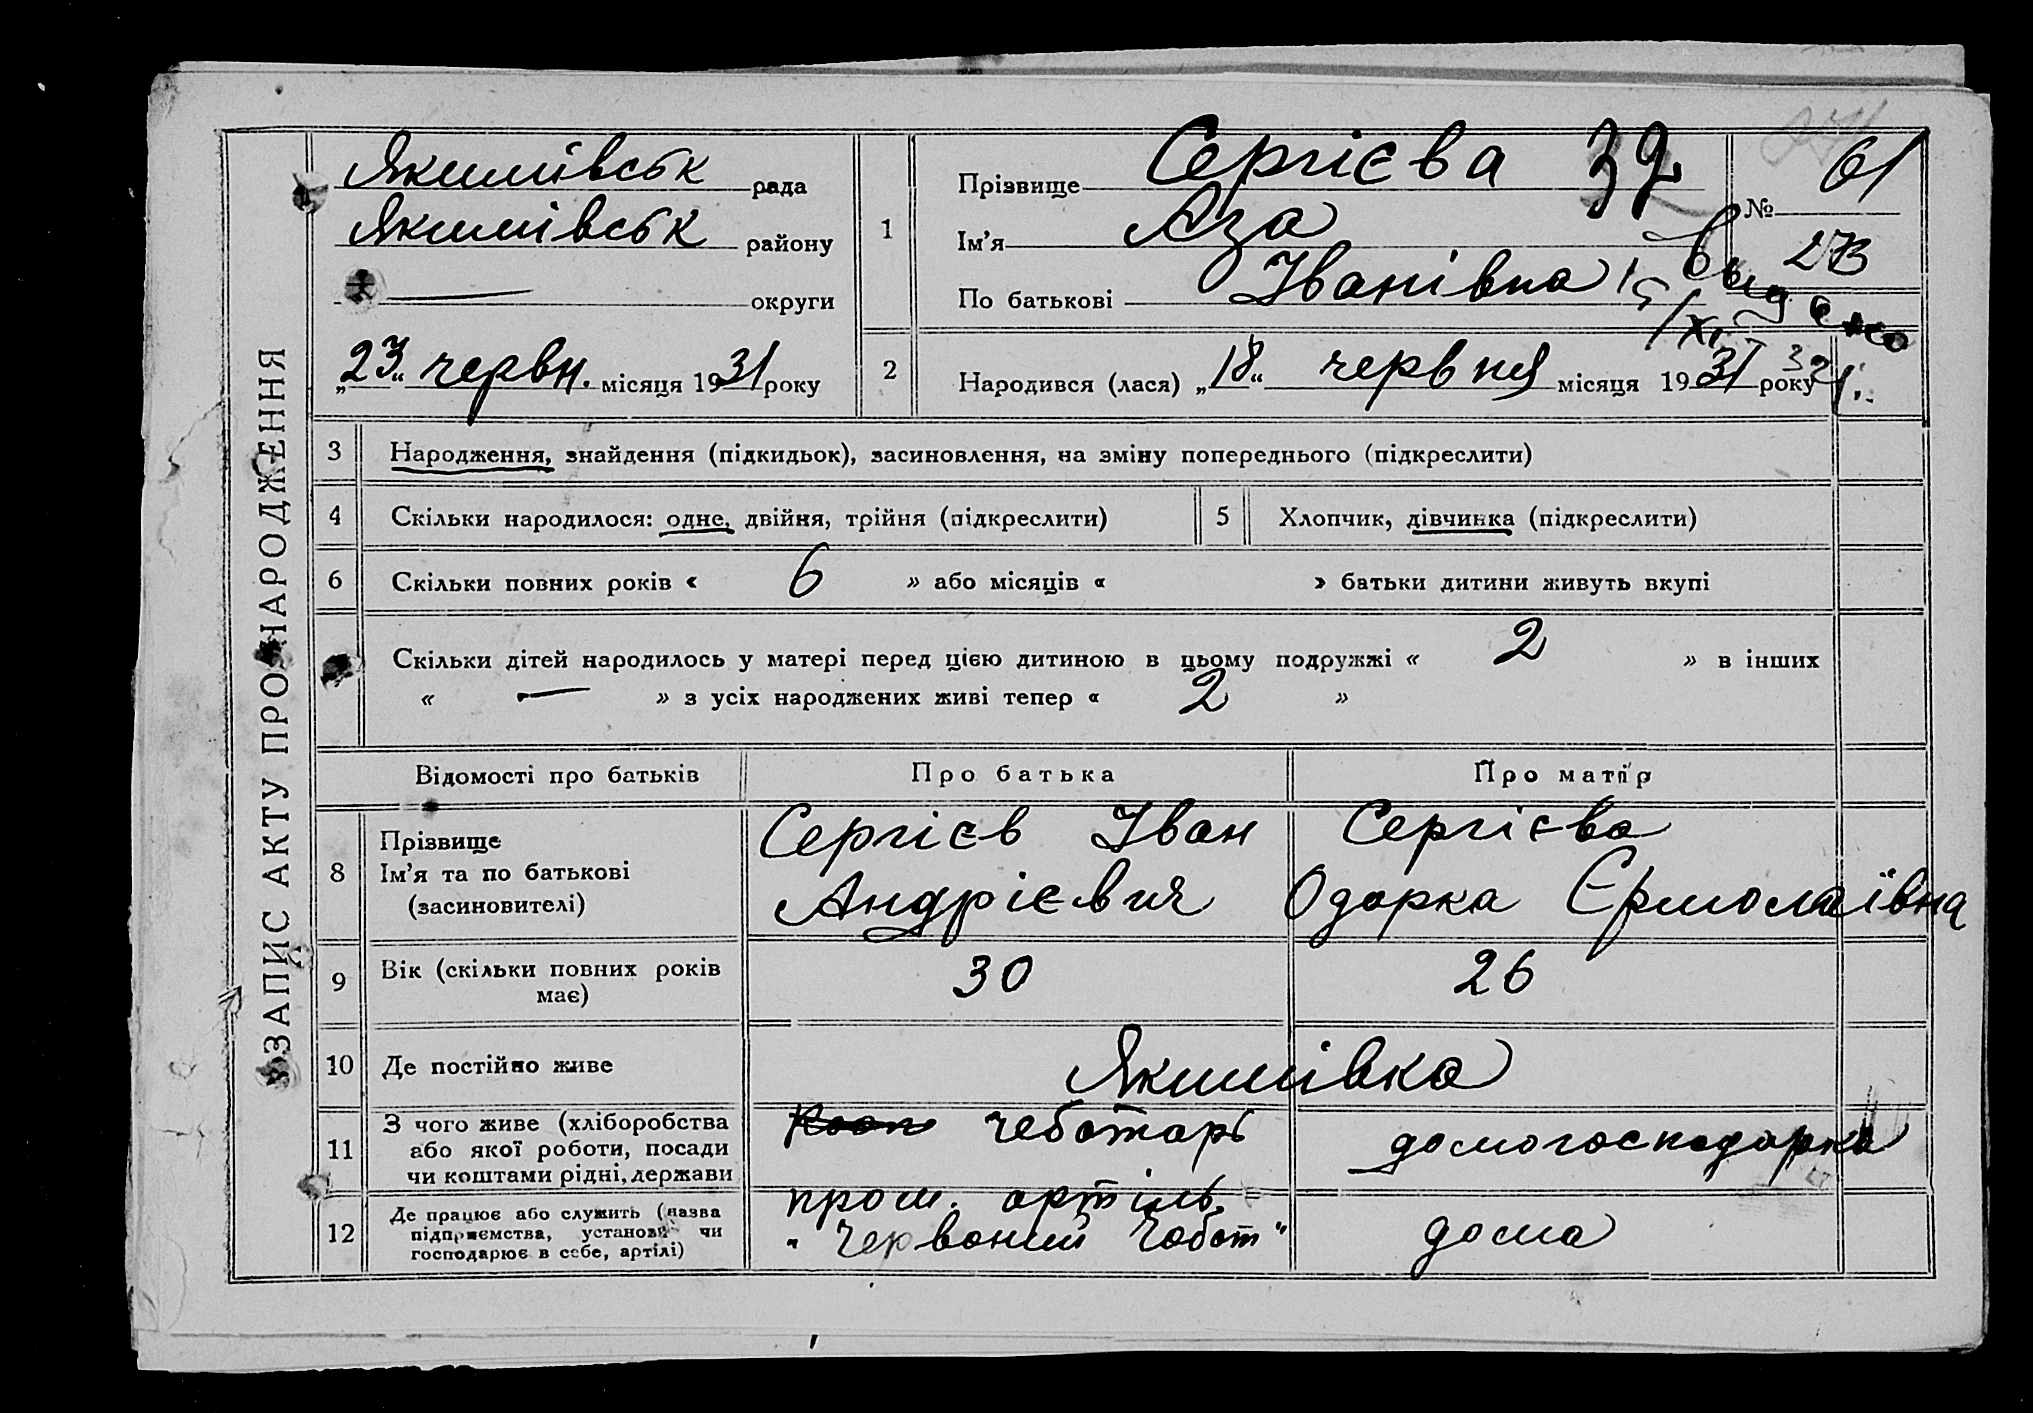 ЗАПИС АКТУ ПРО НАРОДЖЕННЯ
Якимівськ рада
Якимівськ району
— округи
„23“ червн. місяця 1931 року
1
Прізвище Сергієва 32
Ім’я Аза
По батькові Іванівна
№ 61
273
Выдано
15/XI
2
Народився (лася) „18“ червня місяця 1931 року
3 Народження, знайдення (підкидьок), засиновлення, на зміну попереднього (підкреслити)
4 Скільки народилося: одне, двійня, трійня (підкреслити)
5 Хлопчик, дівчинка (підкреслити)
6 Скільки повних років « 6 » або місяців « » батьки дитини живуть вкупі
Скільки дітей народилось у матері перед цією дитиною в цьому подружжі « 2 » в інших
« — » з усіх народжених живі тепер « 2 »
Відомості про батьків Про батька Про матір
8 Прізвище
Ім’я та по батькові
(засиновителі)
Сергієв Іван
Андрієвич
Сергієва
Одарка Єрмолаївна
9 Вік (скільки повних років
має)
30 26
10 Де постійно живе Якимівка
11 З чого живе (хліборобства
або якої роботи, посади
чи коштами рідні, держави
чеботарь
домогосподарка
12 Де працює або служить (назва
підприємства, установи чи
господарює в себе, артілі)
пром. артіль
„Червоний Чобот“
дома